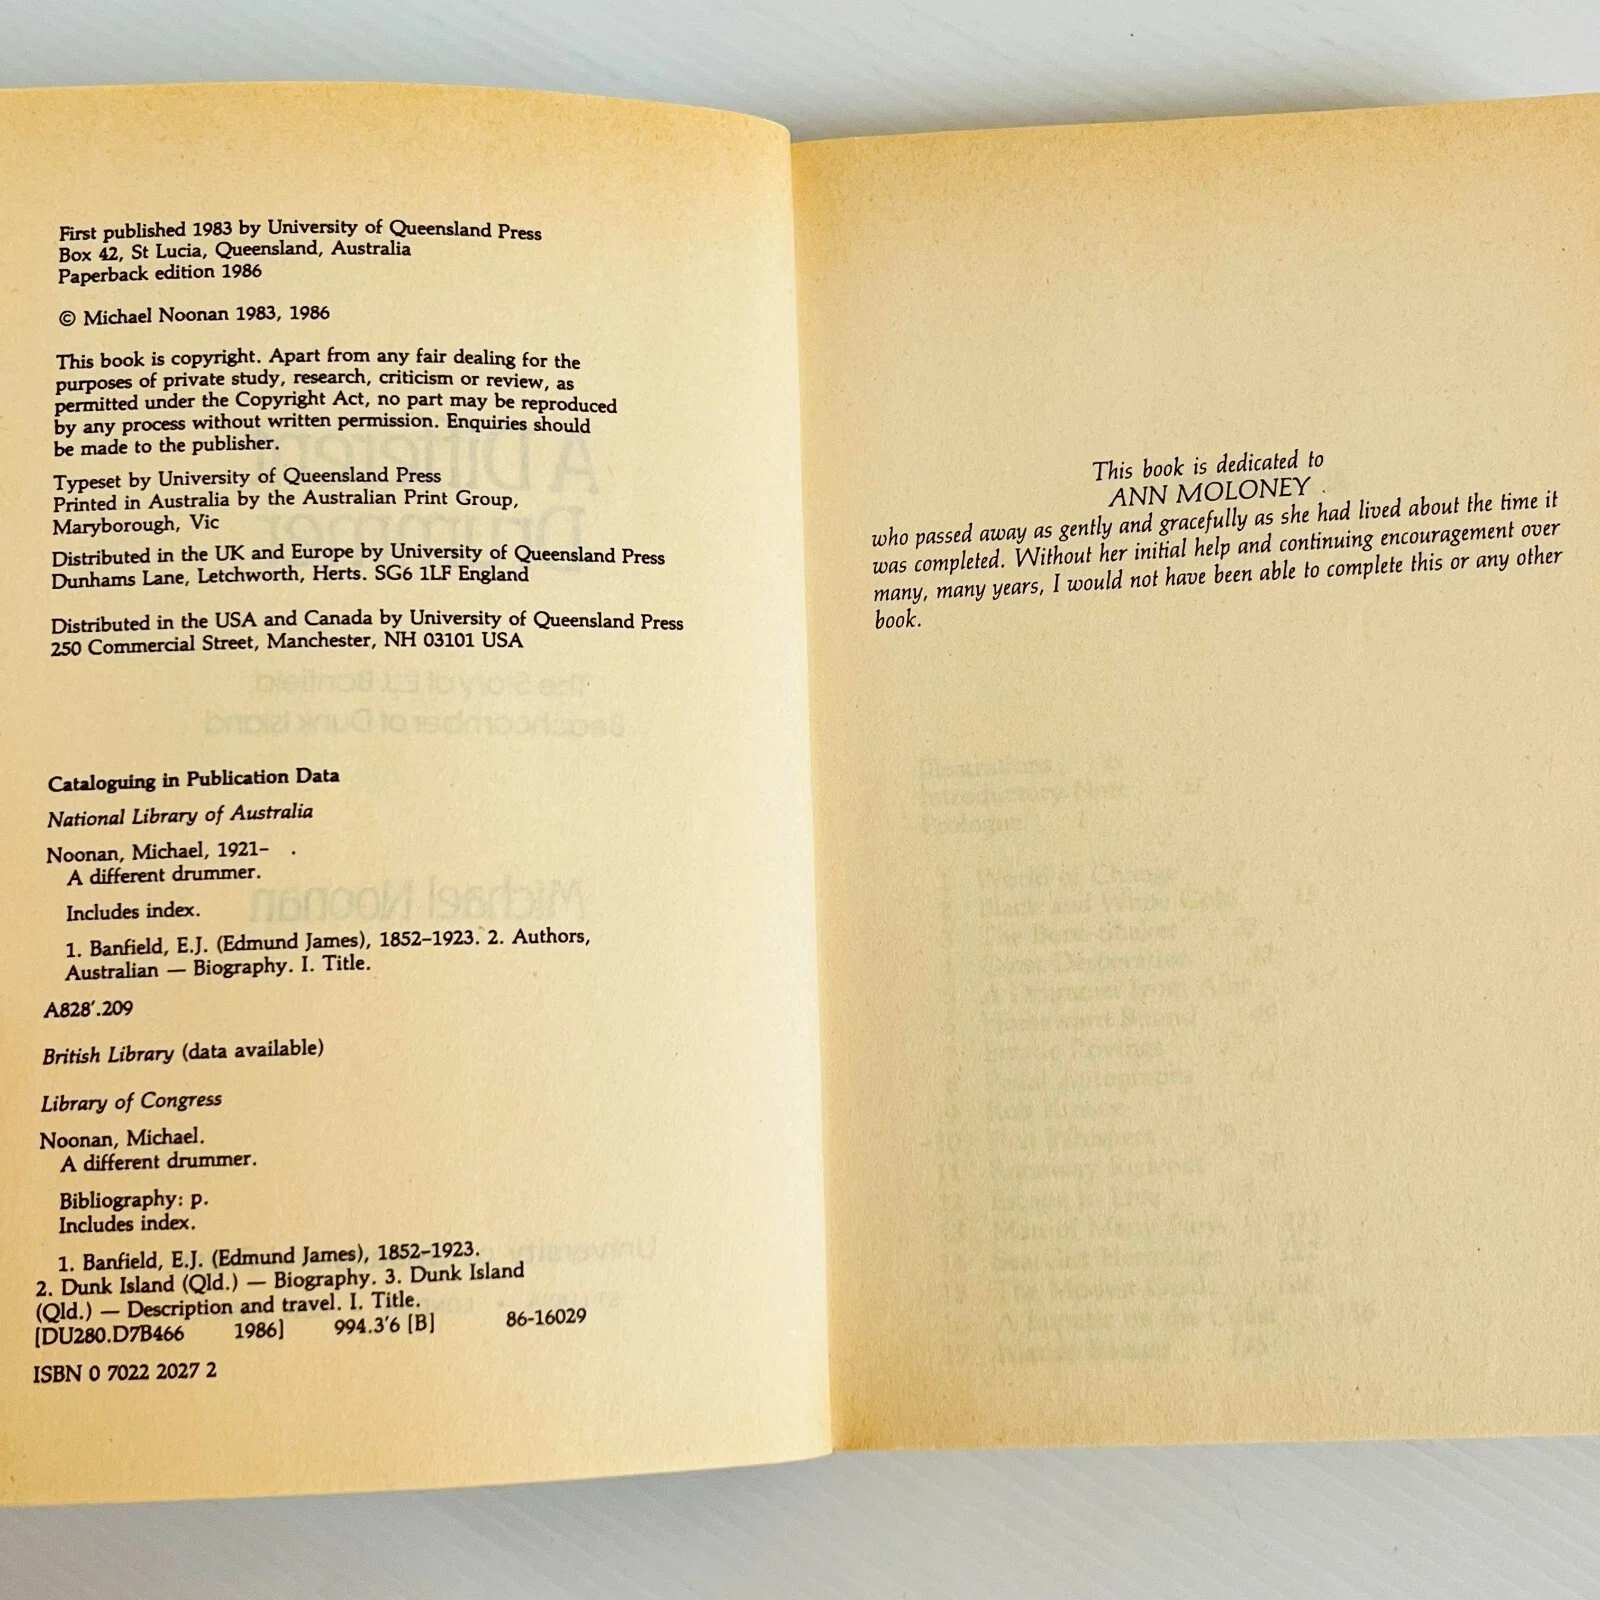 First published 1983 by University of Queensland Press
Box 42, St Lucia, Queensland, Australia
Paperback edition 1986
© Michael Noonan 1983, 1986
This book is copyright. Apart from any fair dealing for the
purposes of private study, research, criticism or review, as
permitted under the Copyright Act, no part may be reproduced
by any process without written permission. Enquiries should
be made to the publisher.
Typeset by University of Queensland Press
Printed in Australia by the Australian Print Group,
Maryborough, Vic
Distributed in the UK and Europe by University of Queensland Press
Dunhams Lane, Letchworth, Herts. SG6 1LF England
Distributed in the USA and Canada by University of Queensland Press
250 Commercial Street, Manchester, NH 03101 USA
Cataloguing in Publication Data
National Library of Australia
Noonan, Michael, 1921– .
A different drummer.
Includes index.
1. Banfield, E.J. (Edmund James), 1852–1923. 2. Authors,
Australian — Biography. I. Title.
A828′.209
British Library (data available)
Library of Congress
Noonan, Michael.
A different drummer.
Bibliography: p.
Includes index.
1. Banfield, E.J. (Edmund James), 1852–1923.
2. Dunk Island (Qld.) — Biography. 3. Dunk Island
(Qld.) — Description and travel. I. Title.
[DU280.D7B466 1986] 994.3′6 [B] 86-16029
ISBN 0 7022 2027 2
This book is dedicated to
ANN MOLONEY
who passed away as gently and gracefully as she had lived about the time it
was completed. Without her initial help and continuing encouragement over
many, many years, I would not have been able to complete this or any other
book.